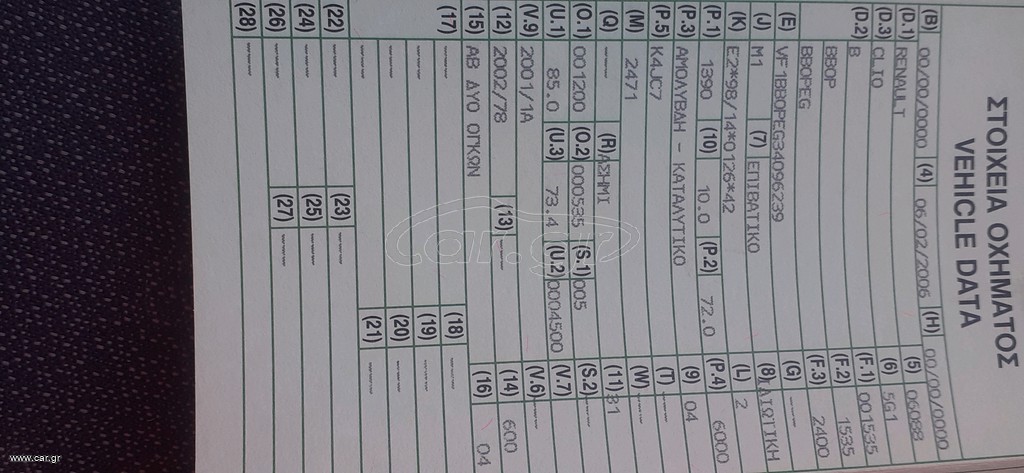 ΣΤΟΙΧΕΙΑ ΟΧΗΜΑΤΟΣ
VEHICLE DATA
(B) 00/00/0000 (4) 06/02/2006 (H) 00/00/0000
(D.1) RENAULT (5) 06088
(D.3) CLIO (6) 5G1
(D.2) B (F.1) 001535
BB0P (F.2) 1535
BB0PEG (F.3) 2400
(E) VF1BB0PEG34096239 (G) ----
(J) M1 (7) ΕΠΙΒΑΤΙΚΟ (8) ΙΔΙΩΤΙΚΗ
(K) E2*98/14*0126*42 (L) 2
(P.1) 1390 (10) 10.0 (P.2) 72.0 (P.4) 6000
(P.3) ΑΜΟΛΥΒΔΗ - ΚΑΤΑΛΥΤΙΚΟ (9) 04
(P.5) K4JC7 (T) ----
(M) 2471 (W) ----
(Q) ---- (R) ΑΣΗΜΙ (11) 31
(O.1) 001200 (O.2) 000535 (S.1) 005 (S.2) ----
(U.1) 85.0 (U.3) 73.4 (U.2) 0004500 (V.7)
(V.9) 2001/1A (V.6) ----
(12) 2002/78 (13) ---- (14) 600
(15) ΑΒ ΔΥΟ ΟΓΚΩΝ (16) 04
(17) ---- (18) ----
---- (19) ----
---- (20) ----
---- (21) ----
(22) ---- (23) ----
(24) ---- (25) ----
(26) ---- (27) ----
(28) ----
car.gr
www.car.gr